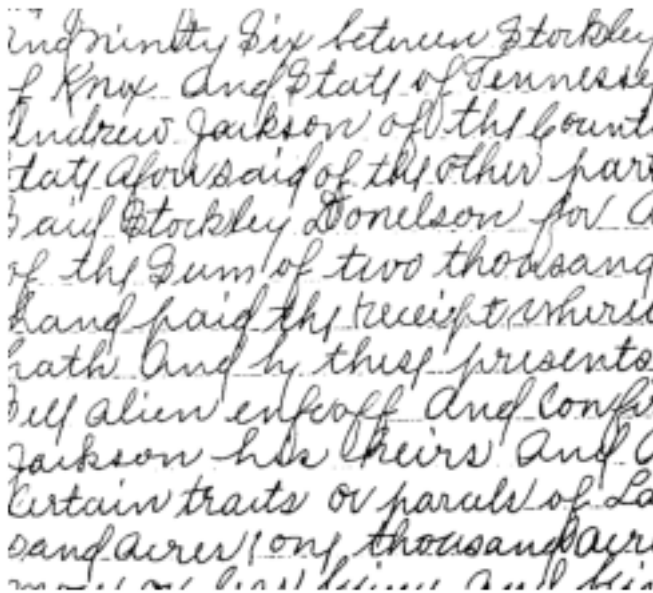 and ninety Six between Stockley
of Knox and State of Tennesse
Andrew Jackson of the Count
tate aforesaid of the other part
Said Stockley Donelson for a
of the Sum of two thousand
hand paid the receipt where
hath and by these presents
Sell alien enfeoff and Confir
Jackson his heirs and a
Certain tracts or parcels of La
sand acres one thousand acre
more or less lying and bein